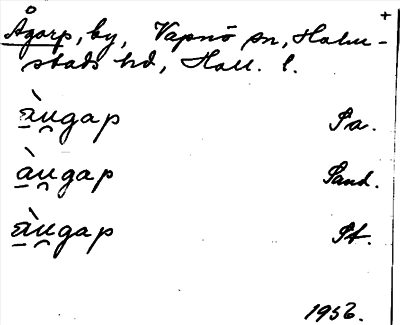 +
Ågarp, by, Vapnö sn, Halm-
stads hd, Hall. l.
à̱u̯gap Pa.
à̱u̯gap Sand.
à̱u̯gap St.
1956.